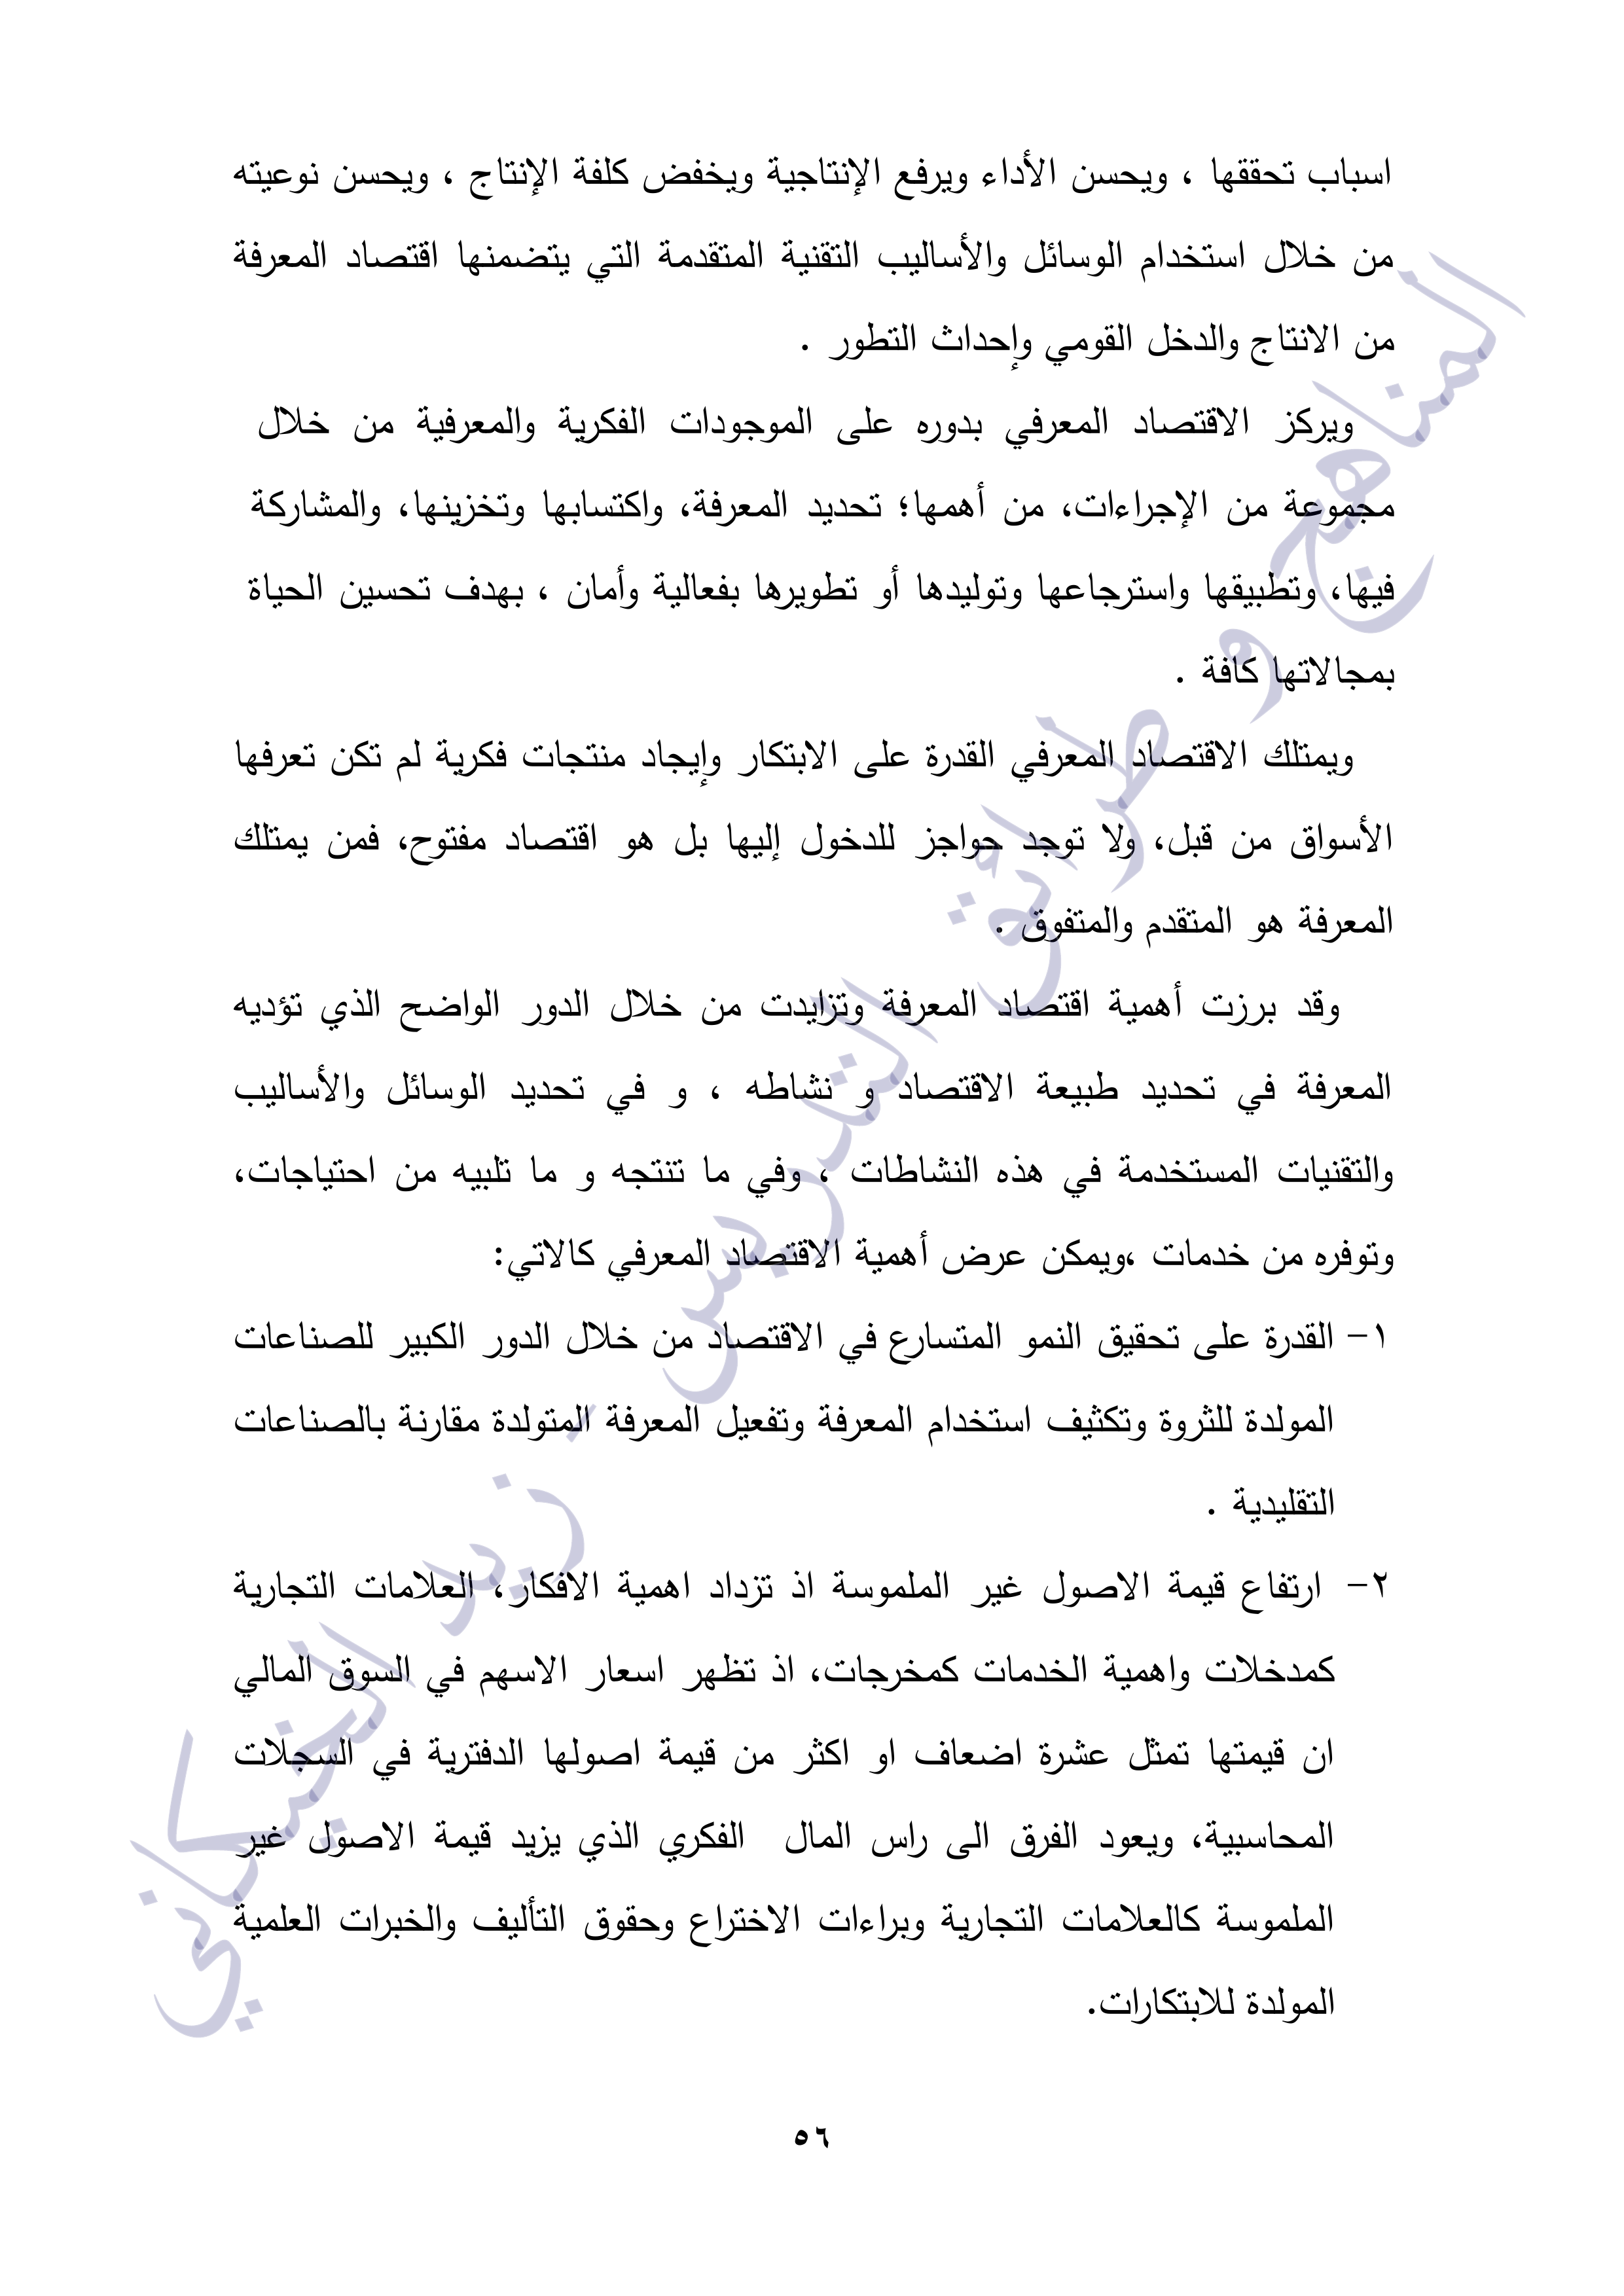 اسباب تحققها ، ويحسن الأداء ويرفع الإنتاجية ويخفض كلفة الإنتاج ، ويحسن نوعيته
من خلال استخدام الوسائل والأساليب التقنية المتقدمة التي يتضمنها اقتصاد المعرفة
من الانتاج والدخل القومي وإحداث التطور .
ويركز الاقتصاد المعرفي بدوره على الموجودات الفكرية والمعرفية من خلال
مجموعة من الإجراءات، من أهمها؛ تحديد المعرفة، واكتسابها وتخزينها، والمشاركة
فيها، وتطبيقها واسترجاعها وتوليدها أو تطويرها بفعالية وأمان ، بهدف تحسين الحياة
بمجالاتها كافة .
ويمتلك الاقتصاد المعرفي القدرة على الابتكار وإيجاد منتجات فكرية لم تكن تعرفها
الأسواق من قبل، ولا توجد حواجز للدخول إليها بل هو اقتصاد مفتوح، فمن يمتلك
المعرفة هو المتقدم والمتفوق .
وقد برزت أهمية اقتصاد المعرفة وتزايدت من خلال الدور الواضح الذي تؤديه
المعرفة في تحديد طبيعة الاقتصاد و نشاطه ، و في تحديد الوسائل والأساليب
والتقنيات المستخدمة في هذه النشاطات ، وفي ما تنتجه و ما تلبيه من احتياجات،
وتوفره من خدمات ،ويمكن عرض أهمية الاقتصاد المعرفي كالاتي:
١- القدرة على تحقيق النمو المتسارع في الاقتصاد من خلال الدور الكبير للصناعات
المولدة للثروة وتكثيف استخدام المعرفة وتفعيل المعرفة المتولدة مقارنة بالصناعات
التقليدية .
٢- ارتفاع قيمة الاصول غير الملموسة اذ تزداد اهمية الافكار، العلامات التجارية
كمدخلات واهمية الخدمات كمخرجات، اذ تظهر اسعار الاسهم في السوق المالي
ان قيمتها تمثل عشرة اضعاف او اكثر من قيمة اصولها الدفترية في السجلات
المحاسبية، ويعود الفرق الى راس المال الفكري الذي يزيد قيمة الاصول غير
الملموسة كالعلامات التجارية وبراءات الاختراع وحقوق التأليف والخبرات العلمية
المولدة للابتكارات.
٥٦
المناهج و طرائق التدريس - زيد الخيكاني